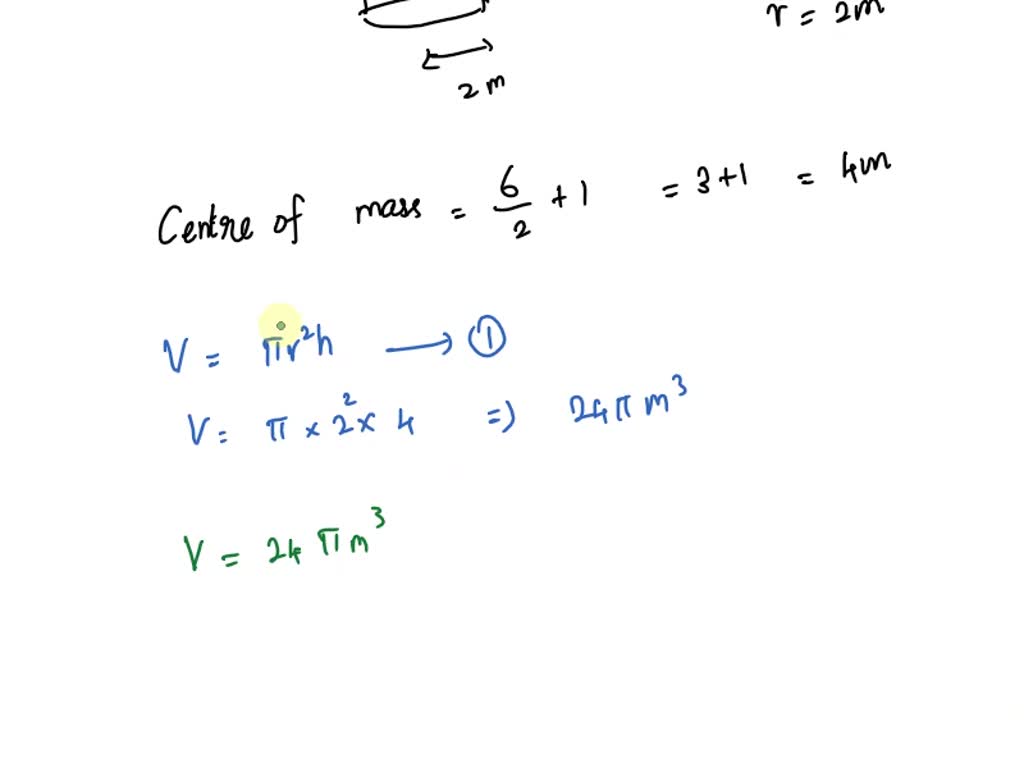 r = 2m
2 m
Centre of mass = 6/2 + 1 = 3+1 = 4m
V = πr²h → ①
V = π × 2² × 4 ⇒ 24π m³
V = 24 π m³